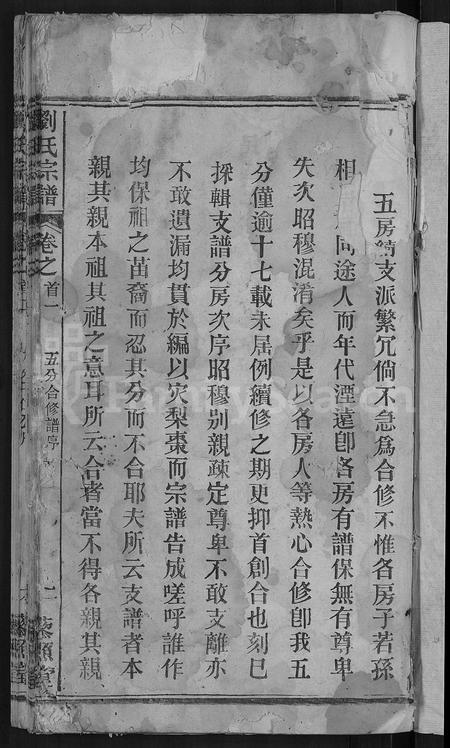 五房繞支派繁冗倘不急爲合修不惟各房子若孫
相 同途人而年代湮遠卽各房有譜保無有尊卑
失次昭穆混淆矣乎是以各房人等熱心合修卽我五
分僅逾十七載未居例續修之期更抑首創合也刻巳
採輯支譜分房次序昭穆別親疎定尊卑不敢支離亦
不敢遺漏均貫於編以灾梨棗而宗譜告成嗟呼誰作
均保祖之苗裔而忍其分而不合耶夫所云支譜者本
親其親本祖其祖之意耳所云合者當不得各親其親
劉氏宗譜 卷之首一 五分合修譜序 二 藜照堂